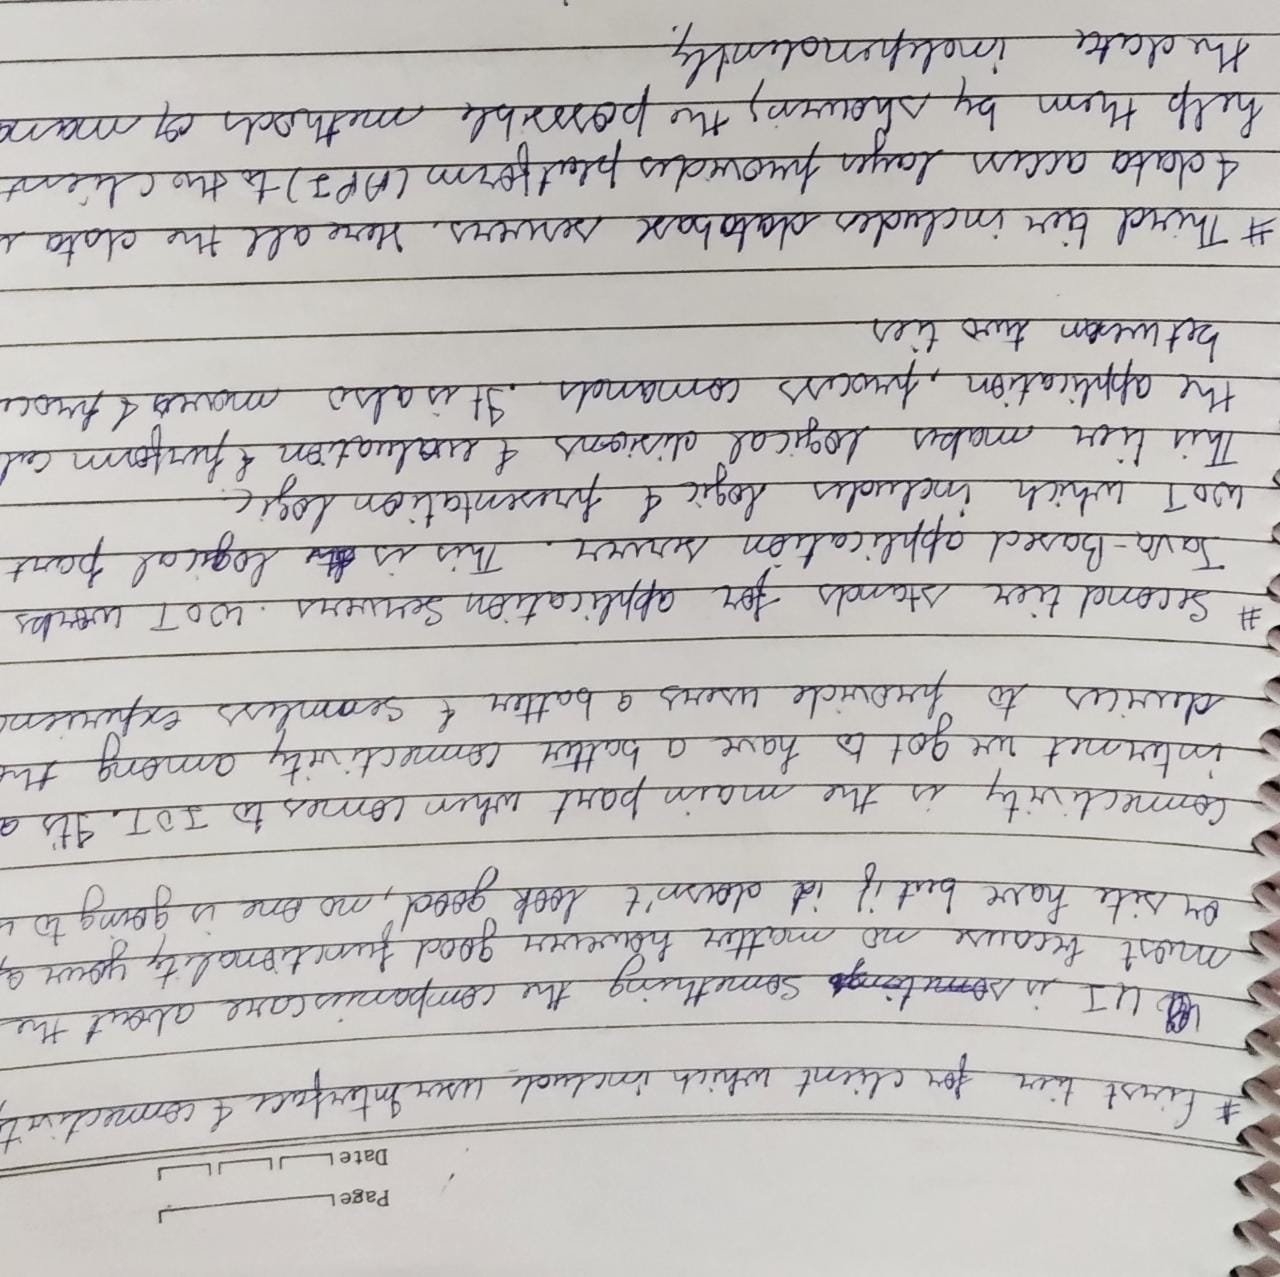 Page
Date
# First tier for client which include user Interface & connectivit
UI is sometings something the companies care about the
most because no matter however good functionality your a
or site have but if it doasn't look good, no one is going to u
Connectivity is the main part when comes to IOT. It's a
internet we got to have a batter connectivity among the
devices to provide users a batter & seamless experienc
# Second tier stands for application Servers. WOT works
Java-Based application server. This is the logical part
WOT which includes logic & presentation logic.
This tier makes logical disions & evaluation & perform cal
the application, process comands. It is also moves & proce
between two ties
# Third tier includes database servers. Here all the data i
& data access layer provides platform (API) to the client
help them by showing the possible methods of mana
the data independently.